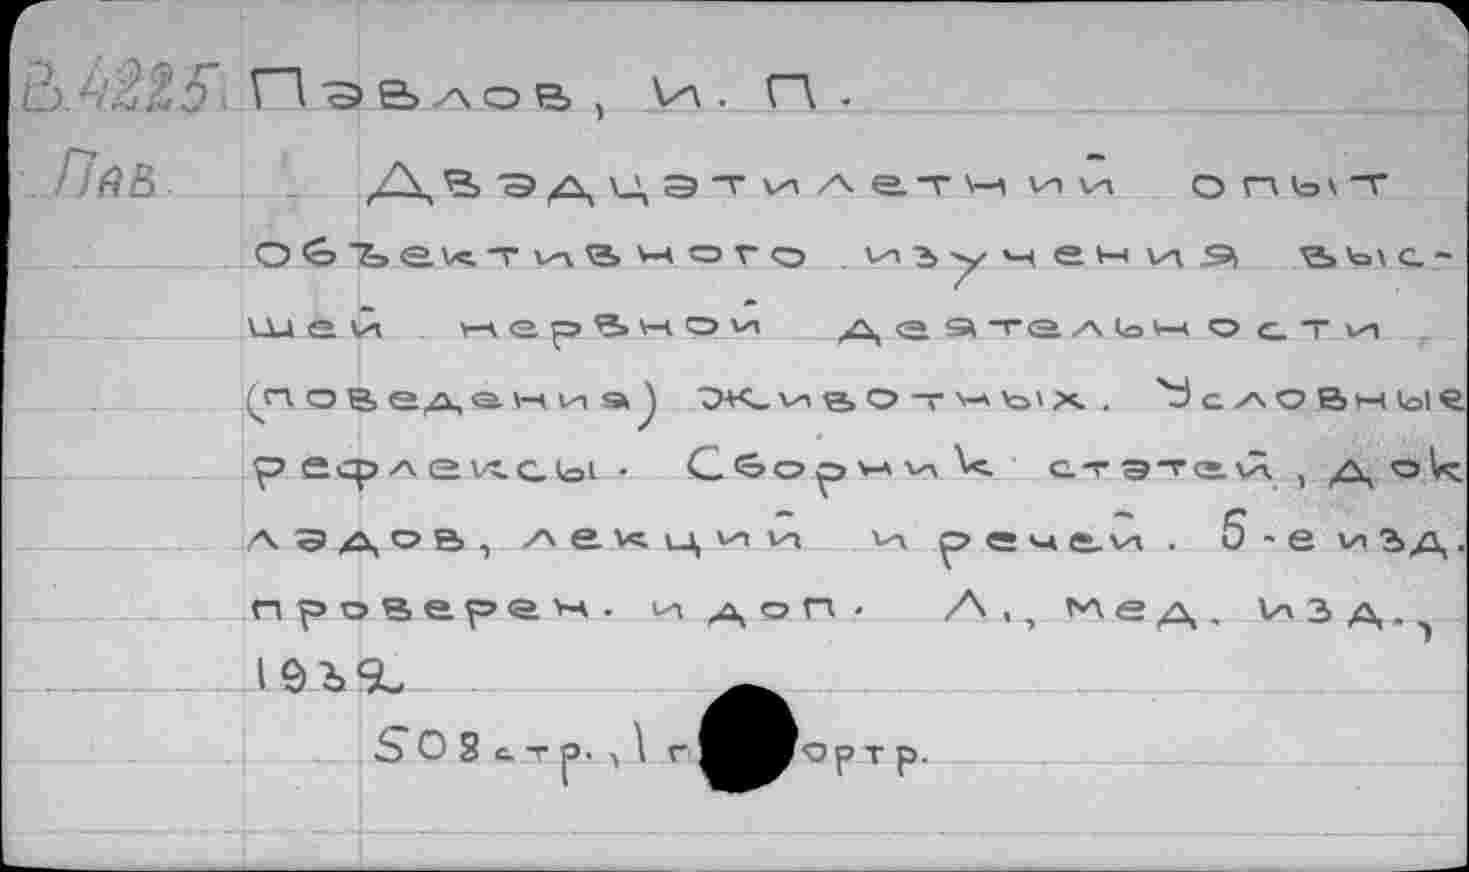 В.4225 Павлов, И. П.
Пав Двадцатилетний опыт
объективного изучения выс-
шей нервной деятельности
(поведения) животных. Условные
рефлексы. Сборник статей, док
ладов, лекций и речей. 5-е изд.
проверен. и доп. Л., Мед. изд.,
1932
508 стр., 1 портр.